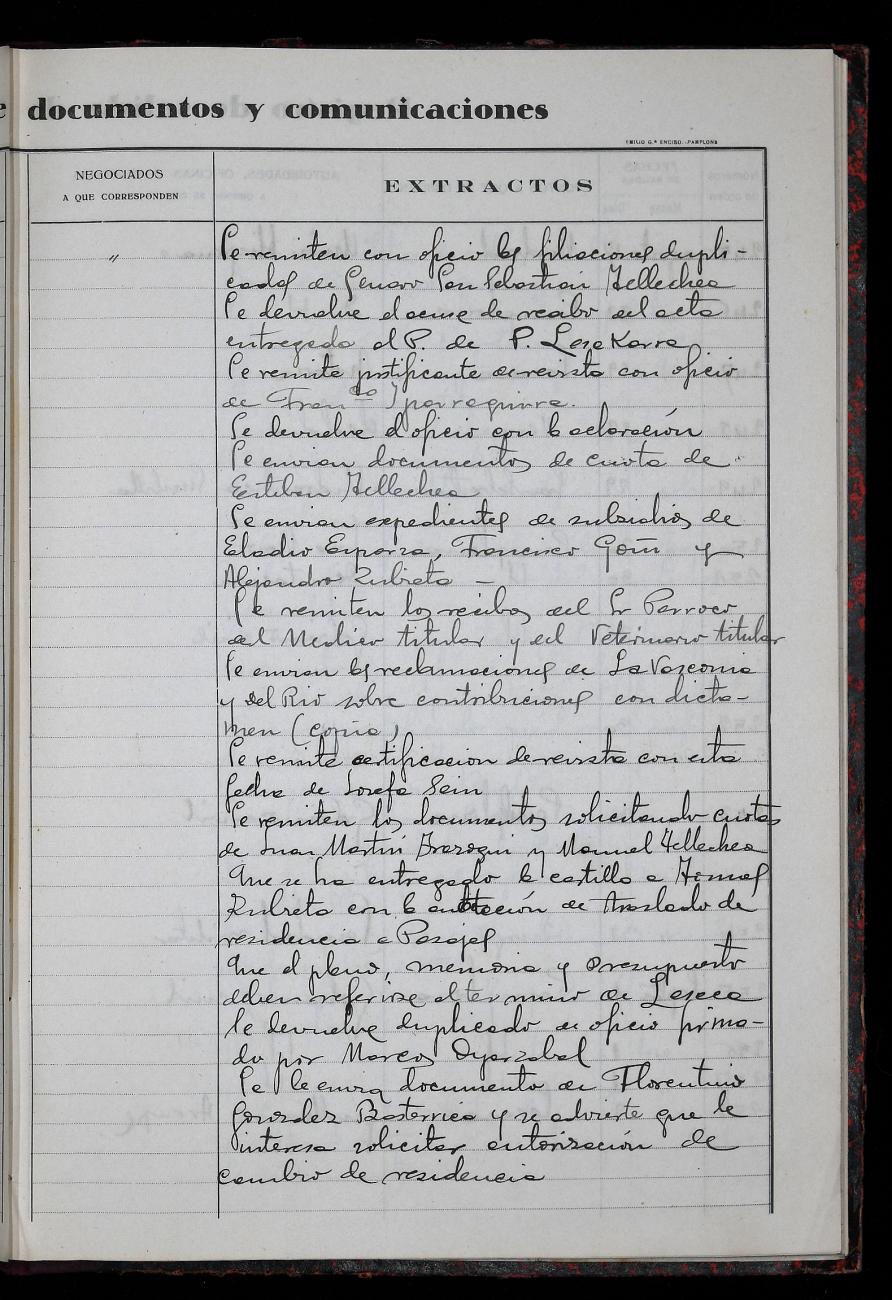 e documentos y comunicaciones
EMILIO G.ª ENCISO.-PAMPLONA
NEGOCIADOS
A QUE CORRESPONDEN
EXTRACTOS
"
Se remiten con oficio las filiaciones dupli-
cadas de Genaro San Sebastian Tellechea
Se devuelve el acuse de recibo del acta
entregada al P. de P.
Se remite justificante de revista con oficio
de Franco Iparraguirre.
Se devuelve el oficio con la aclaración
Se envian documentos de cuota de
Esteban Tellechea
Se envian expedientes de subsidios de
Eladio Esparza, Francisco Goñi y
Alejandro Zubieta —
Se remiten los recibos del Sr Parroco
del Medico titular y del Veterinario titular
Se envian las reclamaciones de La Vasconia
y del Rio sobre contribuciones con dicta-
men (copia)
Se remite certificacion de revista con esta
fecha de Josefa Sein
Se remiten los documentos solicitando cuotas
de Juan Martin Irazoqui y Manuel Tellechea
Que se ha entregado la cartilla a Tomas
Zubieta con la de traslado de
residencia a Pasajes
Que el plano, memoria y presupuesto
deben referirse al termino de Lesaca
Se devuelve duplicado de oficio firma-
do por Marcos Oyarzabal
Se le envia documento de Florentino
Gonzalez Basterrica y se advierte que le
interesa solicitar autorización de
cambio de residencia